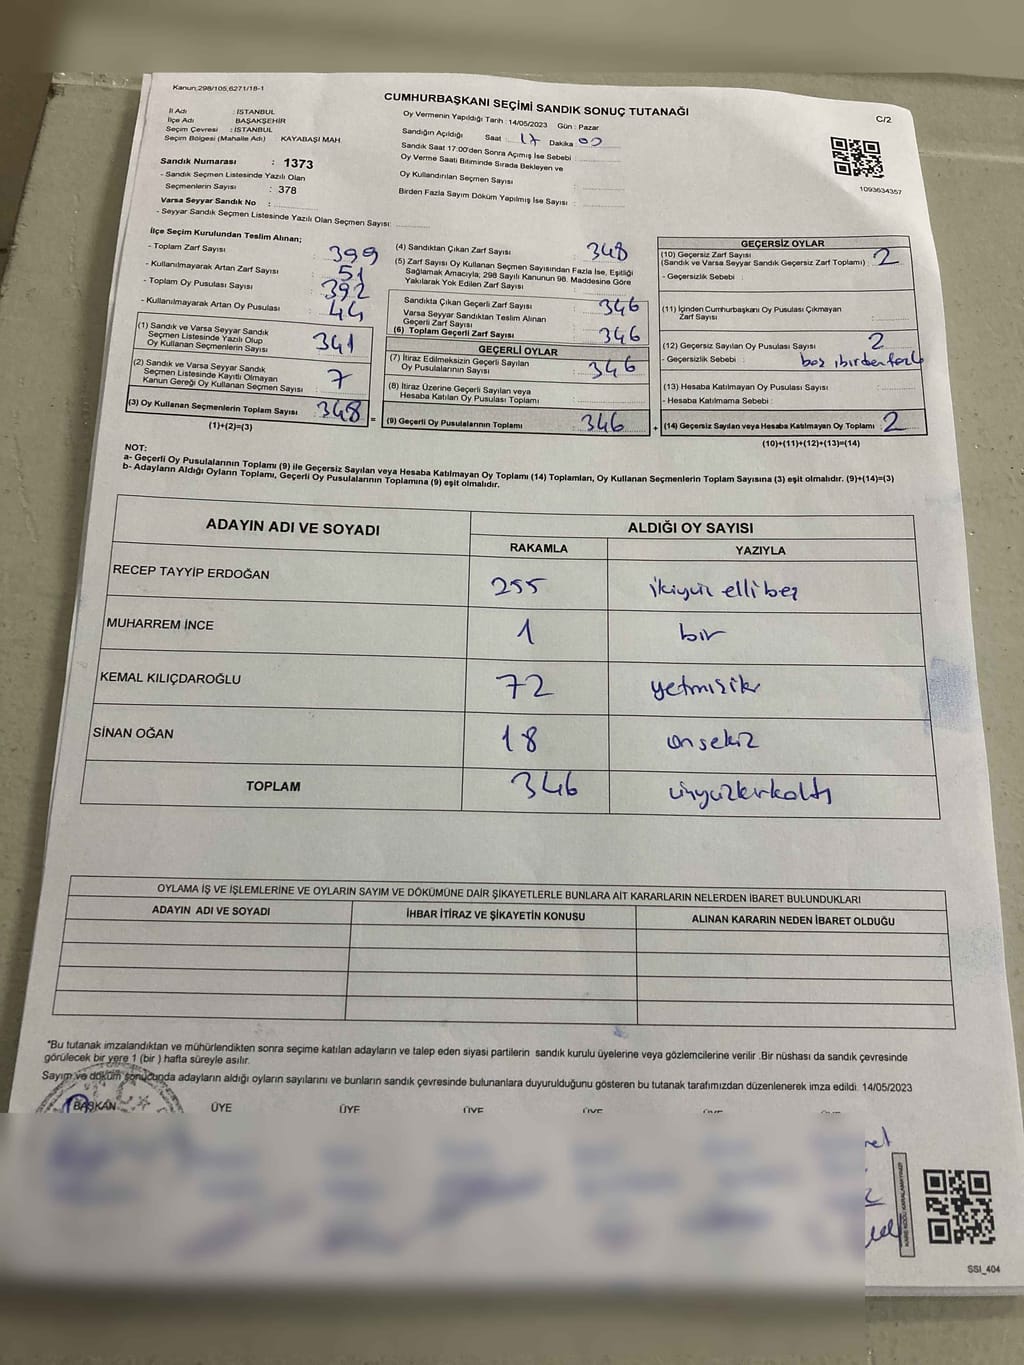 Kanun,298/105,6271/18-1
CUMHURBAŞKANI SEÇİMİ SANDIK SONUÇ TUTANAĞI
C/2
İl Adı : İSTANBUL
İlçe Adı : BAŞAKŞEHİR
Seçim Çevresi : İSTANBUL
Seçim Bölgesi (Mahalle Adı) KAYABAŞI MAH
Sandık Numarası : 1373
- Sandık Seçmen Listesinde Yazılı Olan
Seçmenlerin Sayısı : 378
Varsa Seyyar Sandık No :
- Seyyar Sandık Seçmen Listesinde Yazılı Olan Seçmen Sayısı:
Oy Vermenin Yapıldığı Tarih : 14/05/2023 Gün : Pazar
Sandığın Açıldığı Saat : 17 Dakika 00
Sandık Saat 17:00'den Sonra Açımış İse Sebebi :
Oy Verme Saati Bitiminde Sırada Bekleyen ve
Oy Kullandırılan Seçmen Sayısı :
Birden Fazla Sayım Döküm Yapılmış İse Sayısı :
1093634357
İlçe Seçim Kurulundan Teslim Alınan;
- Toplam Zarf Sayısı : 399
- Kullanılmayarak Artan Zarf Sayısı : 51
- Toplam Oy Pusulası Sayısı : 392
- Kullanılmayarak Artan Oy Pusulası : 44
(1) Sandık ve Varsa Seyyar Sandık
Seçmen Listesinde Yazılı Olup
Oy Kullanan Seçmenlerin Sayısı : 341
(2) Sandık ve Varsa Seyyar Sandık
Seçmen Listesinde Kayıtlı Olmayan
Kanun Gereği Oy Kullanan Seçmen Sayısı : 7
(3) Oy Kullanan Seçmenlerin Toplam Sayısı : 348 =
(1)+(2)=(3)
(4) Sandıktan Çıkan Zarf Sayısı : 348
(5) Zarf Sayısı Oy Kullanan Seçmen Sayısından Fazla İse, Eşitliği
Sağlamak Amacıyla; 298 Sayılı Kanunun 98. Maddesine Göre
Yakılarak Yok Edilen Zarf Sayısı :
Sandıkta Çıkan Geçerli Zarf Sayısı : 346
Varsa Seyyar Sandıktan Teslim Alınan
Geçerli Zarf Sayısı :
(6) Toplam Geçerli Zarf Sayısı : 346
GEÇERLİ OYLAR
(7) İtiraz Edilmeksizin Geçerli Sayılan
Oy Pusulalarının Sayısı : 346
(8) İtiraz Üzerine Geçerli Sayılan veya
Hesaba Katılan Oy Pusulası Toplamı :
(9) Geçerli Oy Pusulalarının Toplamı : 346 +
GEÇERSİZ OYLAR
(10) Geçersiz Zarf Sayısı
(Sandık ve Varsa Seyyar Sandık Geçersiz Zarf Toplamı) : 2
- Geçersizlik Sebebi :
(11) İçinden Cumhurbaşkanı Oy Pusulası Çıkmayan
Zarf Sayısı :
(12) Geçersiz Sayılan Oy Pusulası Sayısı : 2
- Geçersizlik Sebebi : boş, birden fazla
(13) Hesaba Katılmayan Oy Pusulası Sayısı :
- Hesaba Katılmama Sebebi :
(14) Geçersiz Sayılan veya Hesaba Katılmayan Oy Toplamı : 2
(10)+(11)+(12)+(13)=(14)
NOT:
a- Geçerli Oy Pusulalarının Toplamı (9) ile Geçersiz Sayılan veya Hesaba Katılmayan Oy Toplamı (14) Toplamları, Oy Kullanan Seçmenlerin Toplam Sayısına (3) eşit olmalıdır. (9)+(14)=(3)
b- Adayların Aldığı Oyların Toplamı, Geçerli Oy Pusulalarının Toplamına (9) eşit olmalıdır.
ADAYIN ADI VE SOYADI ALDIĞI OY SAYISI
RAKAMLA YAZIYLA
RECEP TAYYİP ERDOĞAN 255 ikiyüz ellibeş
MUHARREM İNCE 1 bir
KEMAL KILIÇDAROĞLU 72 yetmişiki
SİNAN OĞAN 18 onsekiz
TOPLAM 346 üçyüzkırkaltı
OYLAMA İŞ VE İŞLEMLERİNE VE OYLARIN SAYIM VE DÖKÜMÜNE DAİR ŞİKAYETLERLE BUNLARA AİT KARARLARIN NELERDEN İBARET BULUNDUKLARI
ADAYIN ADI VE SOYADI İHBAR İTİRAZ VE ŞİKAYETİN KONUSU ALINAN KARARIN NEDEN İBARET OLDUĞU
*Bu tutanak imzalandıktan ve mühürlendikten sonra seçime katılan adayların ve talep eden siyasi partilerin sandık kurulu üyelerine veya gözlemcilerine verilir .Bir nüshası da sandık çevresinde
görülecek bir yere 1 (bir ) hafta süreyle asılır.
Sayım ve döküm sonucunda adayların aldığı oyların sayılarını ve bunların sandık çevresinde bulunanlara duyurulduğunu gösteren bu tutanak tarafımızdan düzenlenerek imza edildi. 14/05/2023
BAŞKAN ÜYE ÜYE ÜYE ÜYE
SSİ_404